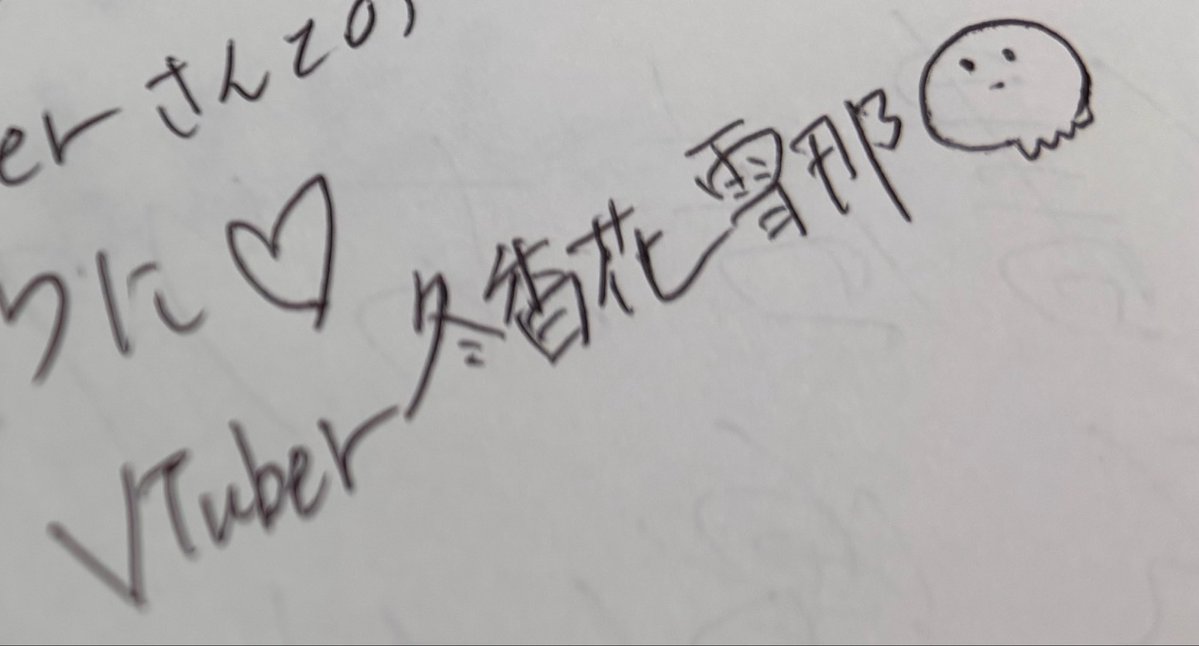 erさんとの
うに♡
VTuber 冬香花雪那